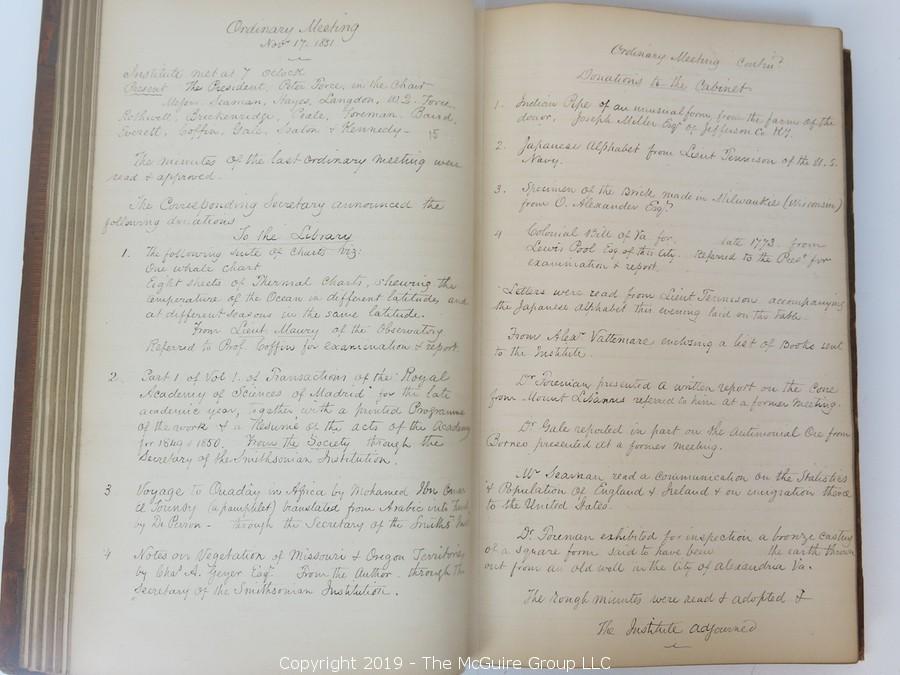 Ordinary Meeting
Novr 17. 1851
Institute met at 7 oclock
Present The President, Peter Force, in the Chair
Messrs. Seaman, Hayes, Langdon, W. Q. Force,
Rothwell, Breckenridge, Peale, Foreman, Baird,
Everett, Coffin, Gale, & Kennedy - 15
The minutes of the last Ordinary meeting were
read & approved.
The Corresponding Secretary announced the
following donations
To the Library
1. The following suite of Charts viz:
One whale chart
Eight sheets of Thermal Charts, shewing the
temperature of the Ocean in different latitudes and
at different seasons in the same latitude.
From Lieut. Maury of the Observatory
Referred to Prof. Coffin for examination & report.
2. Part 1 of Vol 1. of Transactions of the "Royal
Academy of Sciences of Madrid" for the late
academic year, together with a printed Programme
of the work & a Resume of the acts of the Academy
for 1849 & 1850. From the Society through the
Secretary of the Smithsonian Institution.
3 Voyage to Ouaday in Africa by Mohamed Ibn Omar
El Tounsy (a pamphlet) translated from Arabic into
by Dr Perron - through the Secretary of the Smithn Inst
4 Notes on Vegetation of Missouri & Oregon Territories
by Chas A. Geyer Esqr. From the Author. through the
Secretary of the Smithsonian Institution.
Ordinary Meeting Contind
Donations to the Cabinet
1. Indian Pipe of an unusual form, from the farm of the
donor, Joseph Miller Esqr of Jefferson Co. Ky.
2. Japanese Alphabet from Lieut Tennison of the U.S.
Navy.
3. Specimen of the Brick made in Milwaukie (Wisconsin)
from O. Alexander Esqr
4 Colonial Bill of Va for. date 1773. from
Lewis Pool Esq of this City. Referred to the Prest for
examination & report.
Letters were read from Lieut Tennison accompanying
the Japanese Alphabet this evening laid on the table.
From Alexr Vattemare enclosing a list of Books sent
to the Institute.
Dr Foreman presented a written report on the Cone
from Mount Lebanus referred to him at a former meeting.
Dr Gale reported in part on the Antimonial Ore from
Borneo presented at a former meeting.
Mr Seaman read a communication on the Statistics
& Population of England & Ireland & on emigration thence
to the United States.
Dr Foreman exhibited for inspection a bronze casting
of a square form said to have been the earth thrown
out from an old well in the City of Alexandria Va.
The rough minutes were read & adopted &
The Institute adjourned
Copyright 2019 - The McGuire Group LLC